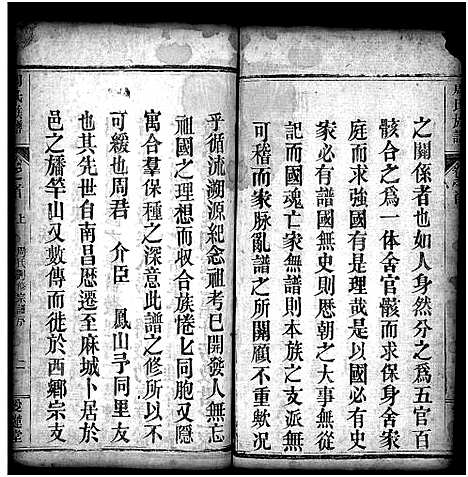 之關係者也如人身然分之爲五官百
骸合之爲一体舍官骸而求保身舍家
庭而求強國有是理哉是以國必有史
家必有譜國無史則歴朝之大事無從
記而國魂亡家無譜則本族之支派無
可稽而家脉亂譜之所関顧不重歟况
乎循流溯源紀念祖考已開發人無忘
祖國之理想而收合族惓匕同胞又隱
寓合羣保種之深意此譜之修所以不
可緩也周君 介臣 鳳山予同里友
也其先世自南昌歴遷至麻城卜居於
邑之旛竿山又數傳而徙於西鄉宗支
上
二